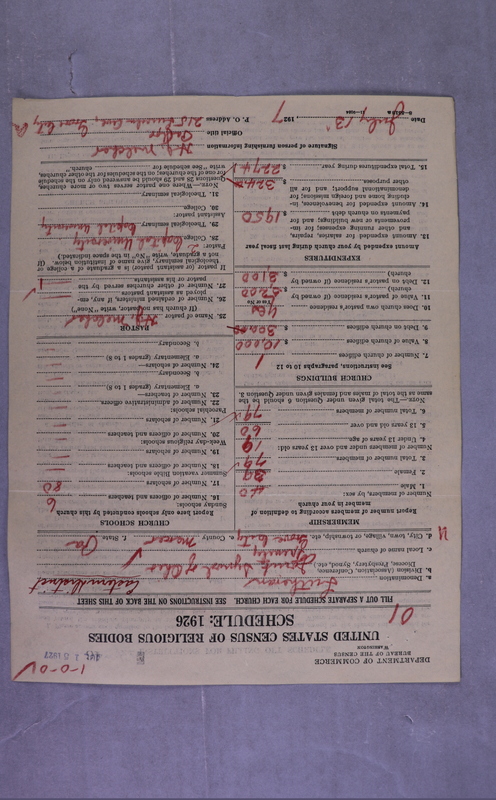 1-0-01
JUL 15 1927
DEPARTMENT OF COMMERCE
BUREAU OF THE CENSUS
WASHINGTON
UNITED STATES CENSUS OF RELIGIOUS BODIES
SCHEDULE: 1926
01
FILL OUT A SEPARATE SCHEDULE FOR EACH CHURCH. SEE INSTRUCTIONS ON THE BACK OF THIS SHEET
a. Denomination Lutheran Eastern District
b. Division (Association, Conference, Diocese, Presbytery, Synod, etc.) Joint Synod of Ohio
c. Local name of church
d. City, town, village, or township, etc. Grove City e. County Mercer f. State Pa
MEMBERSHIP
Report number of members according to definition of member in your church
Number of members, by sex:
1. Male 40
2. Female 39
3. Total number of members 79
Number of members under and over 13 years old:
4. Under 13 years of age 19
5. 13 years old and over 60
6. Total number of members 79
NOTE.—The total given under Question 6 should be the same as the total of males and females given under Question 3.
CHURCH BUILDINGS
See instructions, paragraphs 10 to 12
7. Number of church edifices 1
8. Value of church edifices $ 10,000
9. Debt on church edifices $
10. Does church own pastor's residence yes
(Yes or No)
11. Value of pastor's residence (if owned by church) $
12. Debt on pastor's residence (if owned by church) $ 2,100
EXPENDITURES
Amount expended by your church during last fiscal year
13. Amount expended for salaries, repairs, and other running expenses; for improvements or new building; and for payments on church debt $ 1950
14. Amount expended for benevolence, including home and foreign missions; for denominational support; and for all other purposes $ 324
15. Total expenditures during year $ 2274
CHURCH SCHOOLS
Report here only schools conducted by this church
Sunday schools:
16. Number of officers and teachers 6
17. Number of scholars 80
Summer vacation Bible schools:
18. Number of officers and teachers
19. Number of scholars
Week-day religious schools:
20. Number of officers and teachers
21. Number of scholars
Parochial schools:
22. Number of administrative officers
23. Number of teachers—
a. Elementary (grades 1 to 8)
b. Secondary
24. Number of scholars—
a. Elementary (grades 1 to 8)
b. Secondary
PASTOR
25. Name of pastor H.J. Melcher
(If church has no pastor, write "None")
26. Number of ordained ministers, if any, employed as assistant pastor
27. Number of other churches served by the pastor for his assistants 1
If pastor (or assistant pastor) is a graduate of a college or theological seminary, give name of institution below. (If not a graduate, write "No" in the space indicated.)
Pastor:
28. College Capital University
29. Theological seminary Capital University
Assistant pastor:
30. College
31. Theological seminary
NOTE.—Where one pastor serves two or more churches, Questions 28 and 29 should be answered only on the schedule for one of the churches; on the schedules for the other churches, write "See schedule for church."
Signature of person furnishing information H.J. Melcher
Official title Pastor
P. O. Address Grove City, Pa
Date July 13, 1927